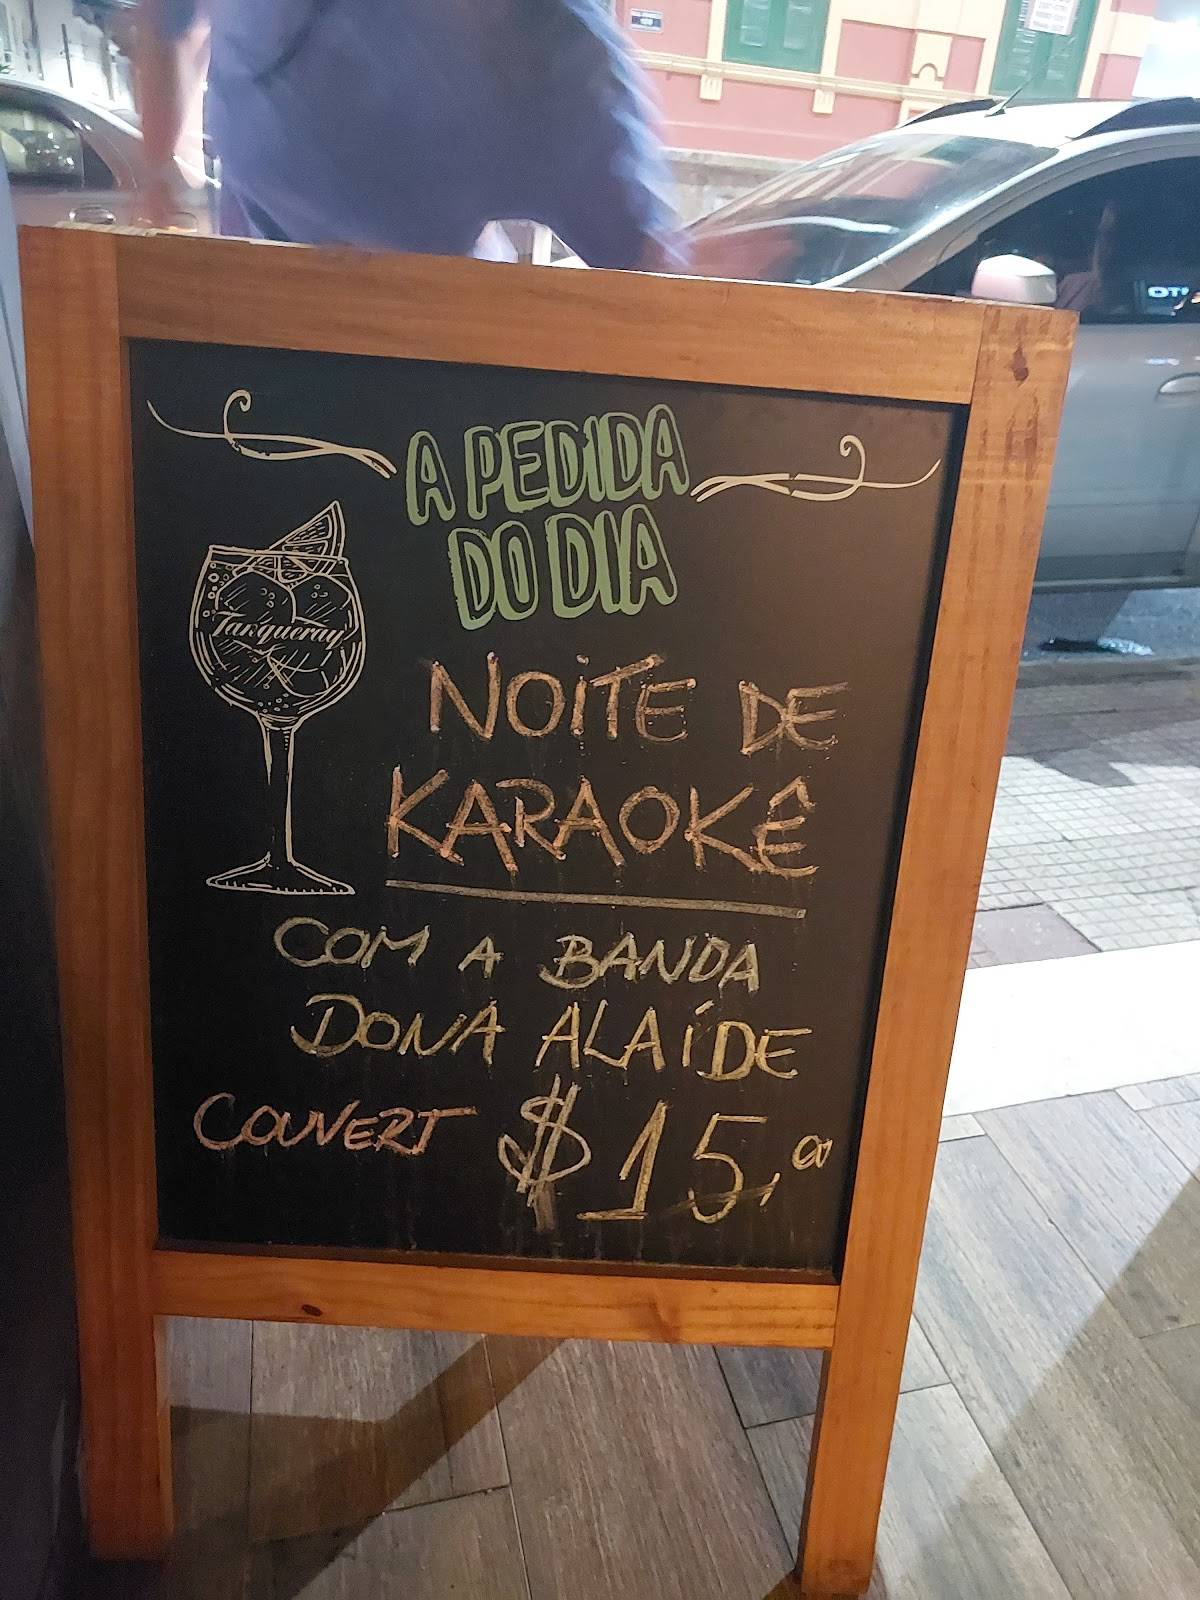 A PEDIDA
DO DIA
Tanqueray
NOITE DE
KARAOKÊ
COM A BANDA
DONA ALAÍDE
COUVERT $15,00